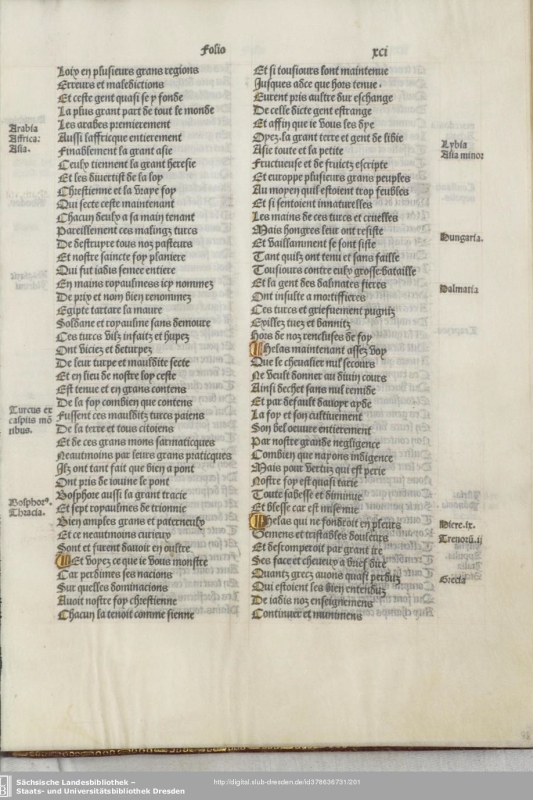 Folio
xci
Loix en plusieurs grans regions
Erreurs et maledictions
Et ceste gent quasi se y fonde
La plus grant part de tout le monde
Arabia
Les arabes premierement
Affrica:
Aussi laffricque entierement
Asia.
Finablement la grant asie
Ceulx tiennent la grant heresie
Et les divertist de la loy
Chrestienne et la vraye foy
Qui secte ceste maintenant
Chacun deulx a sa main tenant
Pareillement ces malingz turcs
De destruyre tous noz pasteurs
Et nostre saincte foy planiere
Qui fut iadis semee entiere
En mains royaulmes icy nommez
De prix et nom bien renommez
Egipte tartare la maure
Soldane et royaulme sans demoure
Ces turcs vilz infaitz et hupez
Ont viciez et deturpez
De leur turpe et mauldite secte
Et en lieu de nostre foy ceste
Est tenue et en grans contens
De la foy combien que contens
Turcus ex
Fussent ces maulditz turcs paiens
caspiis mō
De la terre et tous citoiens
tibus.
Et de ces grans mons sarmaticques
Neautmoins par leurs grans praticques
Ilz ont tant fait que bien a pont
Ont pris de iouine le pont
Bosphor⁹.
Bosphore aussi la grant tracie
Thracia.
Et sept royaulmes de trionnie
Bien amples grans et paterneulx
Et ce neautmoins curieux
Sont et furent davoir en oultre
Et voyez ce que ie vous monstre
Car perdimes ses nacions
Sur quelles dominacions
Avoit nostre foy chrestienne
Chacun la tenoit comme sienne
Et si tousiours sont maintenue
Jusques adce que hors tenue.
Eurent pris aultre dur eschange
De celle dicte gent estrange
Et affin que ie vous les dye
Oyez. la grant terre et gent de libie
Lybia
Asie toute et la petite
Asia minor
Fructueuse et de fruictz escripte
Et europpe plusieurs grans peuples
Au moyen quil estoient trop feubles
Et si sentoient innaturelles
Les mains de ces turcs et cruelles
Mais hongres leur ont resiste
Hungaria.
Et vaillamment se sont siste
Tant quilz ont tenu et sans faille
Tousiours contre eulx grosse bataille
Et la gent des dalmates fieres
Dalmatia
Ont insulte a mortiffieres
Ces turcs et griefvement pugniz
Exillez tuez et bannitz
Hors de noz rencluses de foy
Helas maintenant assez voy
Que le chevalier nul secours
Ne veult donner au divin cours
Ainsi dechet sans nul remide
Et par default davoyr ayde
La foy et son cultivement
Son bel oeuvre entierement
Par nostre grande negligence
Combien que nayons indigence
Mais pour vertuz qui est perie
Nostre foy est quasi tarie
Toute sabesse et diminue
Et blesse car est mise nue
Helas qui ne fondroit en pleurs
Hiere.ix.
Gemens et tristables douleurs
Trenorū.ij
Et destromperoit par grant ire
Ses face et cheveux a brief dire
Quantz grecz avons quasi perduz
Grecia
Qui estoient les bien entenduz
De iadis noz enseignemens
Continuer et munimens
Sächsische Landesbibliothek –
Staats- und Universitätsbibliothek Dresden
http://digital.slub-dresden.de/id378636731/201